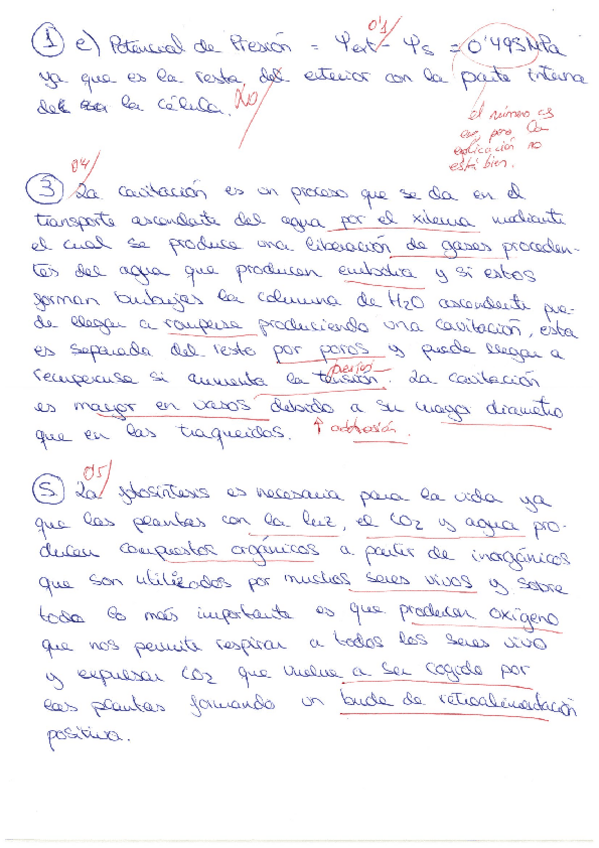 0'1
① e) Potencial de Presión = Ψext - Ψs = 0'493 MPa
ya que es la resta del exterior con la parte interna
de la célula. No
el número es
pero la
explicación no
está bien.
0'4
③ La cavitación es un proceso que se da en el
transporte ascendente del agua por el xilema mediante
el cual se produce una liberación de gases proceden-
tes del agua que producen embolia y si estos
forman burbujas la columna de H2O ascendente pue-
de llegar a romperse produciendo una cavitación, esta
es separada del resto por poros y puede llegar a
recuperarse si aumenta la tensión. La cavitación
presión
es mayor en vasos debido a su mayor diametro
que en las traqueidas. ↑ adhesión.
0'5
⑤ La fotosíntesis es necesaria para la vida ya
que las plantas con la luz, el CO2 y agua pro-
ducen compuestos orgánicos a partir de inorgánicos
que son utilizados por muchos seres vivos y sobre
todo lo más importante es que producen oxígeno
que nos permite respirar a todos los seres vivo
y expulsar CO2 que vuelve a ser cogido por
las plantas formando un bucle de retroalimentación
positiva.